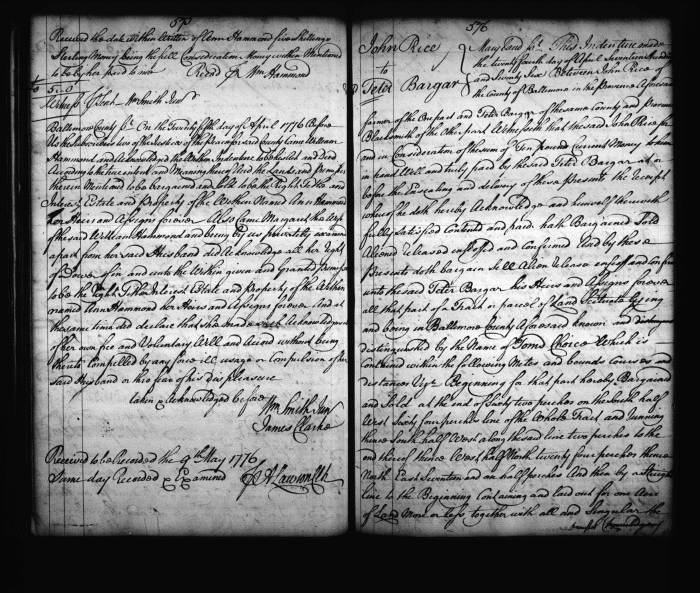 575
Received the date within written of Ann Hammond five Shillings
Sterling Money being the full Consideration Money within Mentioned
to be by her paid to me
Wm Hammond
to
5..0
Wm Smith Jun
Baltimore County Ss. On the Twenty fifth day of April 1776 Before
Us the Subscribers two of the Justices of the Peace for said County Came William
Hammond and Acknowledged the Within Indenture to be his Act and Deed
According to the true intent and Meaning thereof And the Lands and Premises
therein Mentioned to be bargained and Sold to be the Right Title and
Interest Estate and Property of the Within Named Ann Hammond
her Heirs and Assigns forever Also Came Margaret the Wife
of the said William Hammond and being by us privately examined
apart from her said Husband did Acknowledge all her Right
of Dower of in and unto the Within given and Granted Premises
to be the Right Title Interest Estate and Property of the Within
named Ann Hammond her Heirs and Assigns forever And at
the same time did declare that she made such Acknowledgment
of her own free and Voluntary Will and Accord without being
thereto Compelled by any force ill usage or Compulsion of her
said Husband or thro fear of his displeasure
taken & Acknowledged before
Wm Smith Jun
James Clarke
Received to be Recorded the 9th May 1776
Same day Recorded & Examined
576
John Rice
to
Peter Bargar
Maryland Ss. This Indenture made
the twenty fourth day of April Seventeen Hundred
and Seventy Six Between John Rice of
the County of Baltimore in the Province Aforesaid
farmer of the One part and Peter Bargar of the same County and Province
Blacksmith of the Other part Witnesseth that the said John Rice for
and in Consideration of the sum of Ten pounds Current Money to him
in hand Well and truly paid by the said Peter Bargar at or
before the Ensealing and delivery of these Presents the Receipt
whereof he doth hereby Acknowledge and himself therewith
fully Satisfied Contented and paid hath Bargained Sold
Aliened Released enfeoffed and Confirmed And by these
Presents doth bargain Sell Alien Release enfeoff and Confirm
unto the said Peter Bargar his Heirs and Assigns forever
all that part of a Tract or parcel of Land Scituate lying
and being in Baltimore County Aforesaid known and
distinguished by the Name of Toms Choice Which is
contained within the following Metes and bounds Courses and
distances Viz. Beginning for that part hereby Bargained
and Sold at the end of Sixty two perches on the South half
West Sixty four perches line of the Whole Tract and running
thence South half West along the said line two perches to the
end thereof thence West half North twenty four perches thence
North East Seventeen and an half perches And then by a Straight
line to the Beginning Containing and laid out for one Acre
of Land More or less together with all and Singular the